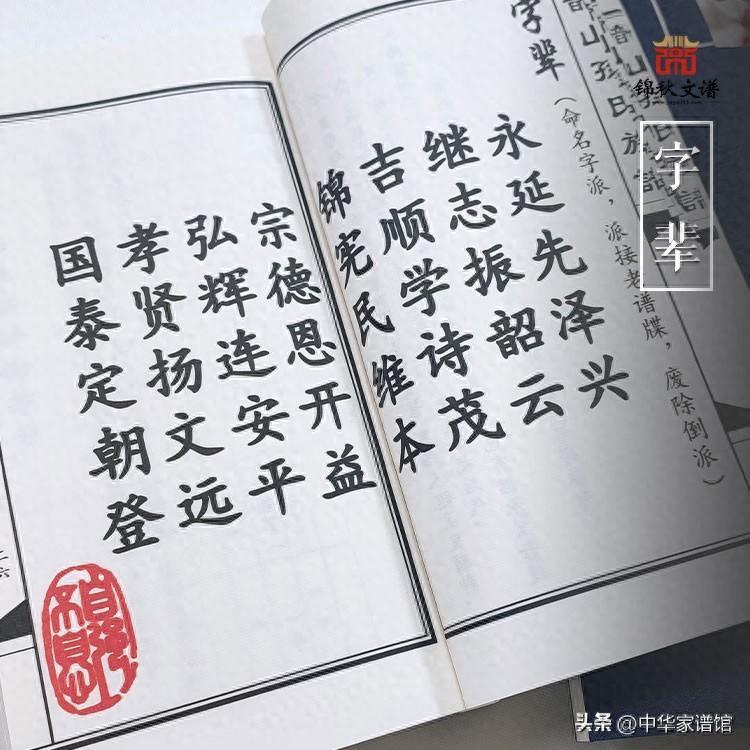 锦秋文谱
字辈
字辈
（命名字派，派接老谱牒，废除倒派）
永延先泽兴
继志振韶云
吉顺学诗茂
锦宪民维本
宗德恩开益
弘辉连安平
孝贤扬文远
国泰定朝登
自强不息
头条 @中华家谱馆